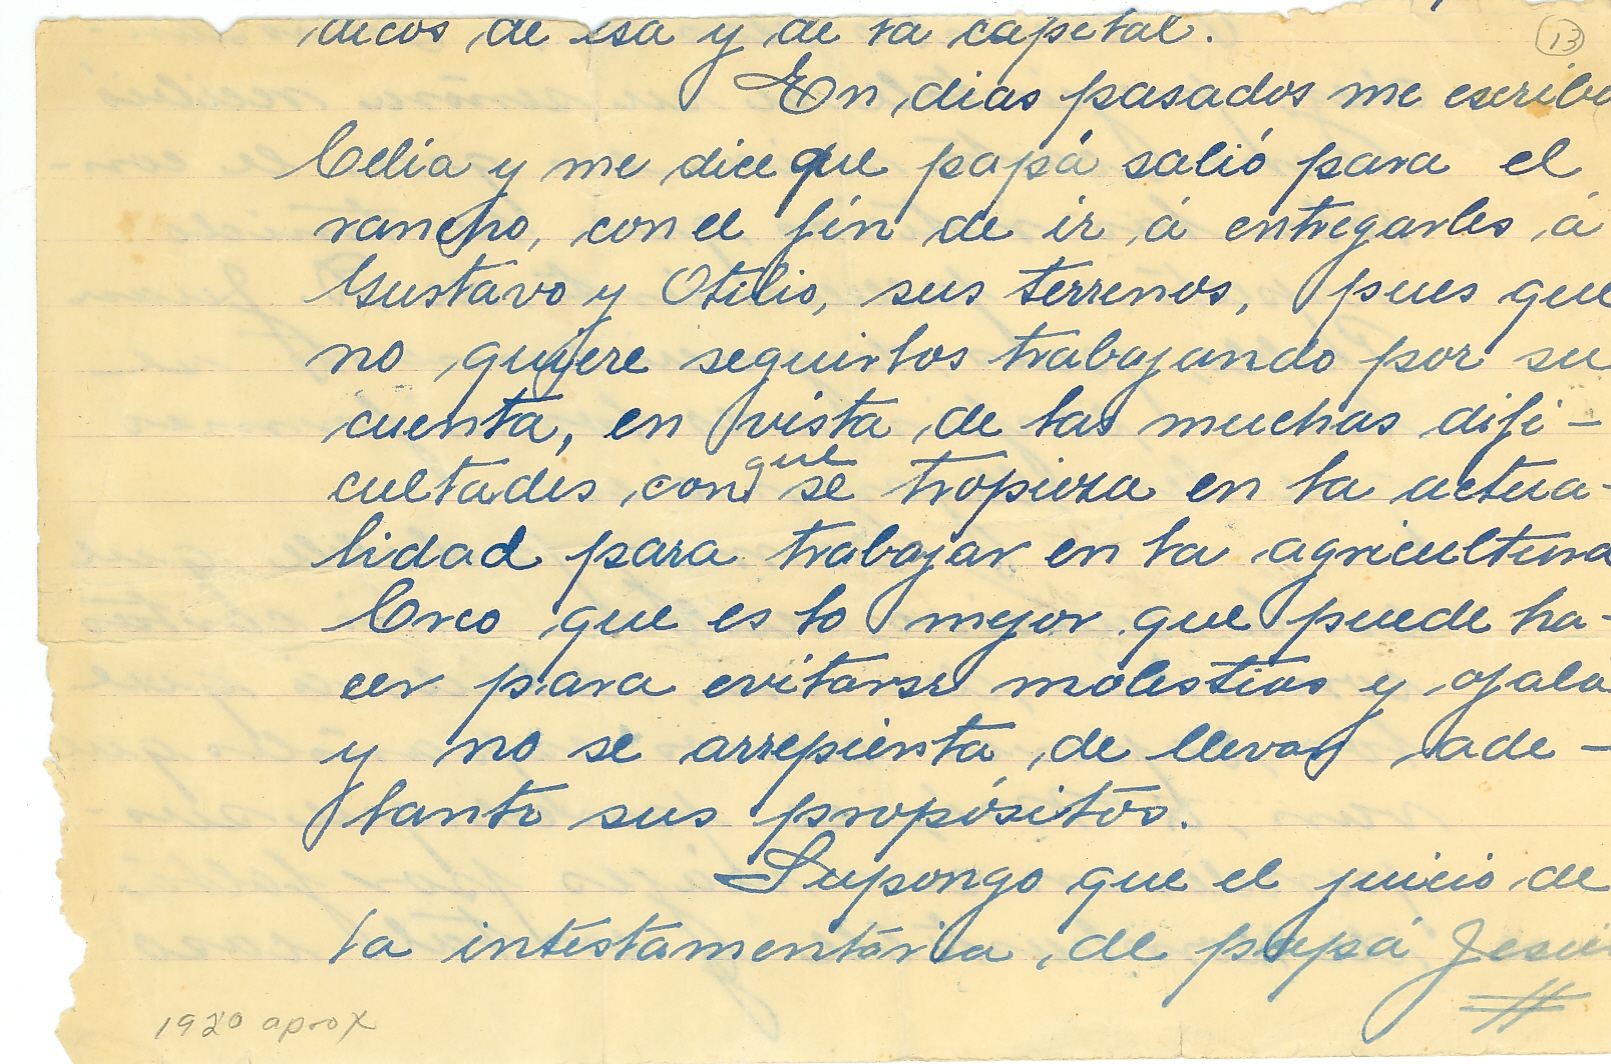 dicos de esa y de la capital.
13
En dias pasados me escribe
Celia y me dice que papá salió para el
rancho, con el fin de ir á entregarles á
Gustavo y Otilio, sus terrenos, pues que
no quiere seguirlos trabajando por su
cuenta, en vista de las muchas difi-
cultades con que se tropieza en la actua-
lidad para trabajar en la agricultura
Creo que es lo mejor que puede ha-
cer para evitarse molestias y ojalá
y no se arrepienta de llevar ade-
lante sus propósitos.
Supongo que el juicio de
la intestamentaria, de papá Jesús
1920 aprox